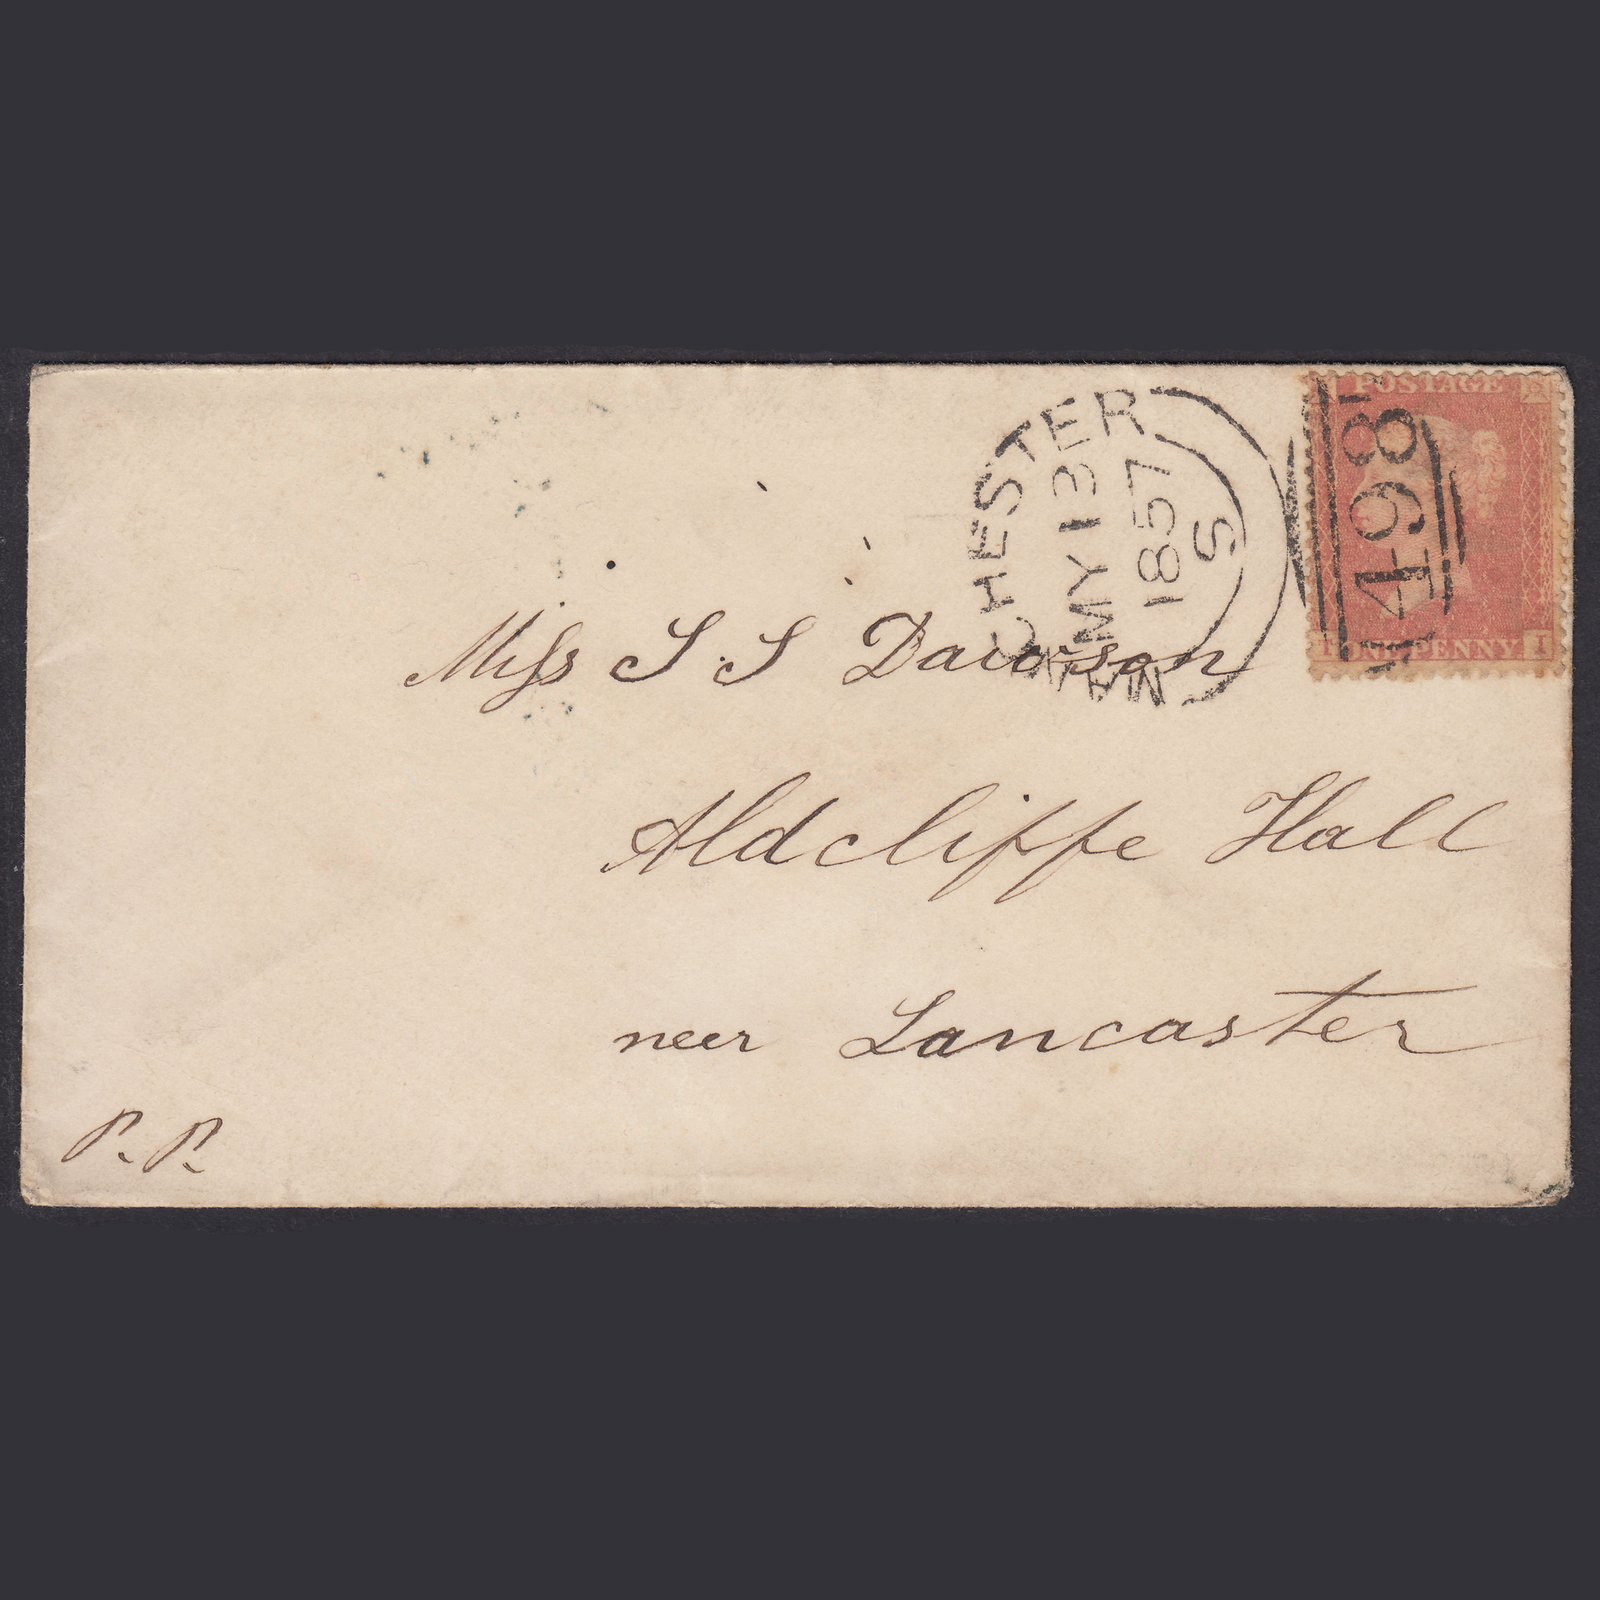 POSTAGE
498
ONE PENNY
I
MANCHESTER
MY 13
1857
S
Miss S. S Dawson
Aldcliffe Hall
neer Lancaster
P. P.